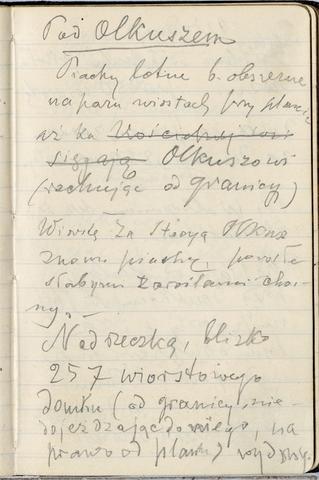 Pod Olkuszem
Piachy lotne b. obszerne
na paru wiorstach przy plancie
aż ku Kościelnej
sięgają Olkuszowi
(rachując od granicy)
Wiorstę za Stacyą Olkusz
znowu piachy, porosłe
słabym zaroślami choi-
ny. –
Nad rzeczką, blizko
257 wiorstowego
domku (od granicy, nie-
dojeżdżając do niego, na
prawo od plantu) wydmy.